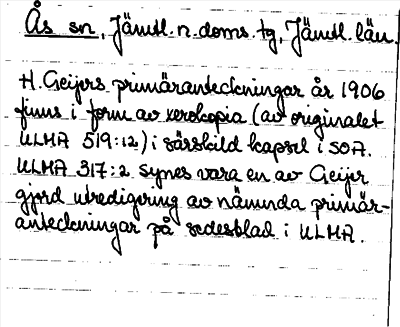 Ås sn, Jämtl. n. doms. tg, Jämtl. län.
H. Geijers primäranteckningar år 1906
finns i form av xerokopia (av originalet
ULMA 519:12) i särskild kapsel i SOA.
ULMA 317:2 synes vara en av Geijer
gjord utredigering av nämnda primär-
anteckningar på sedesblad i ULMA.